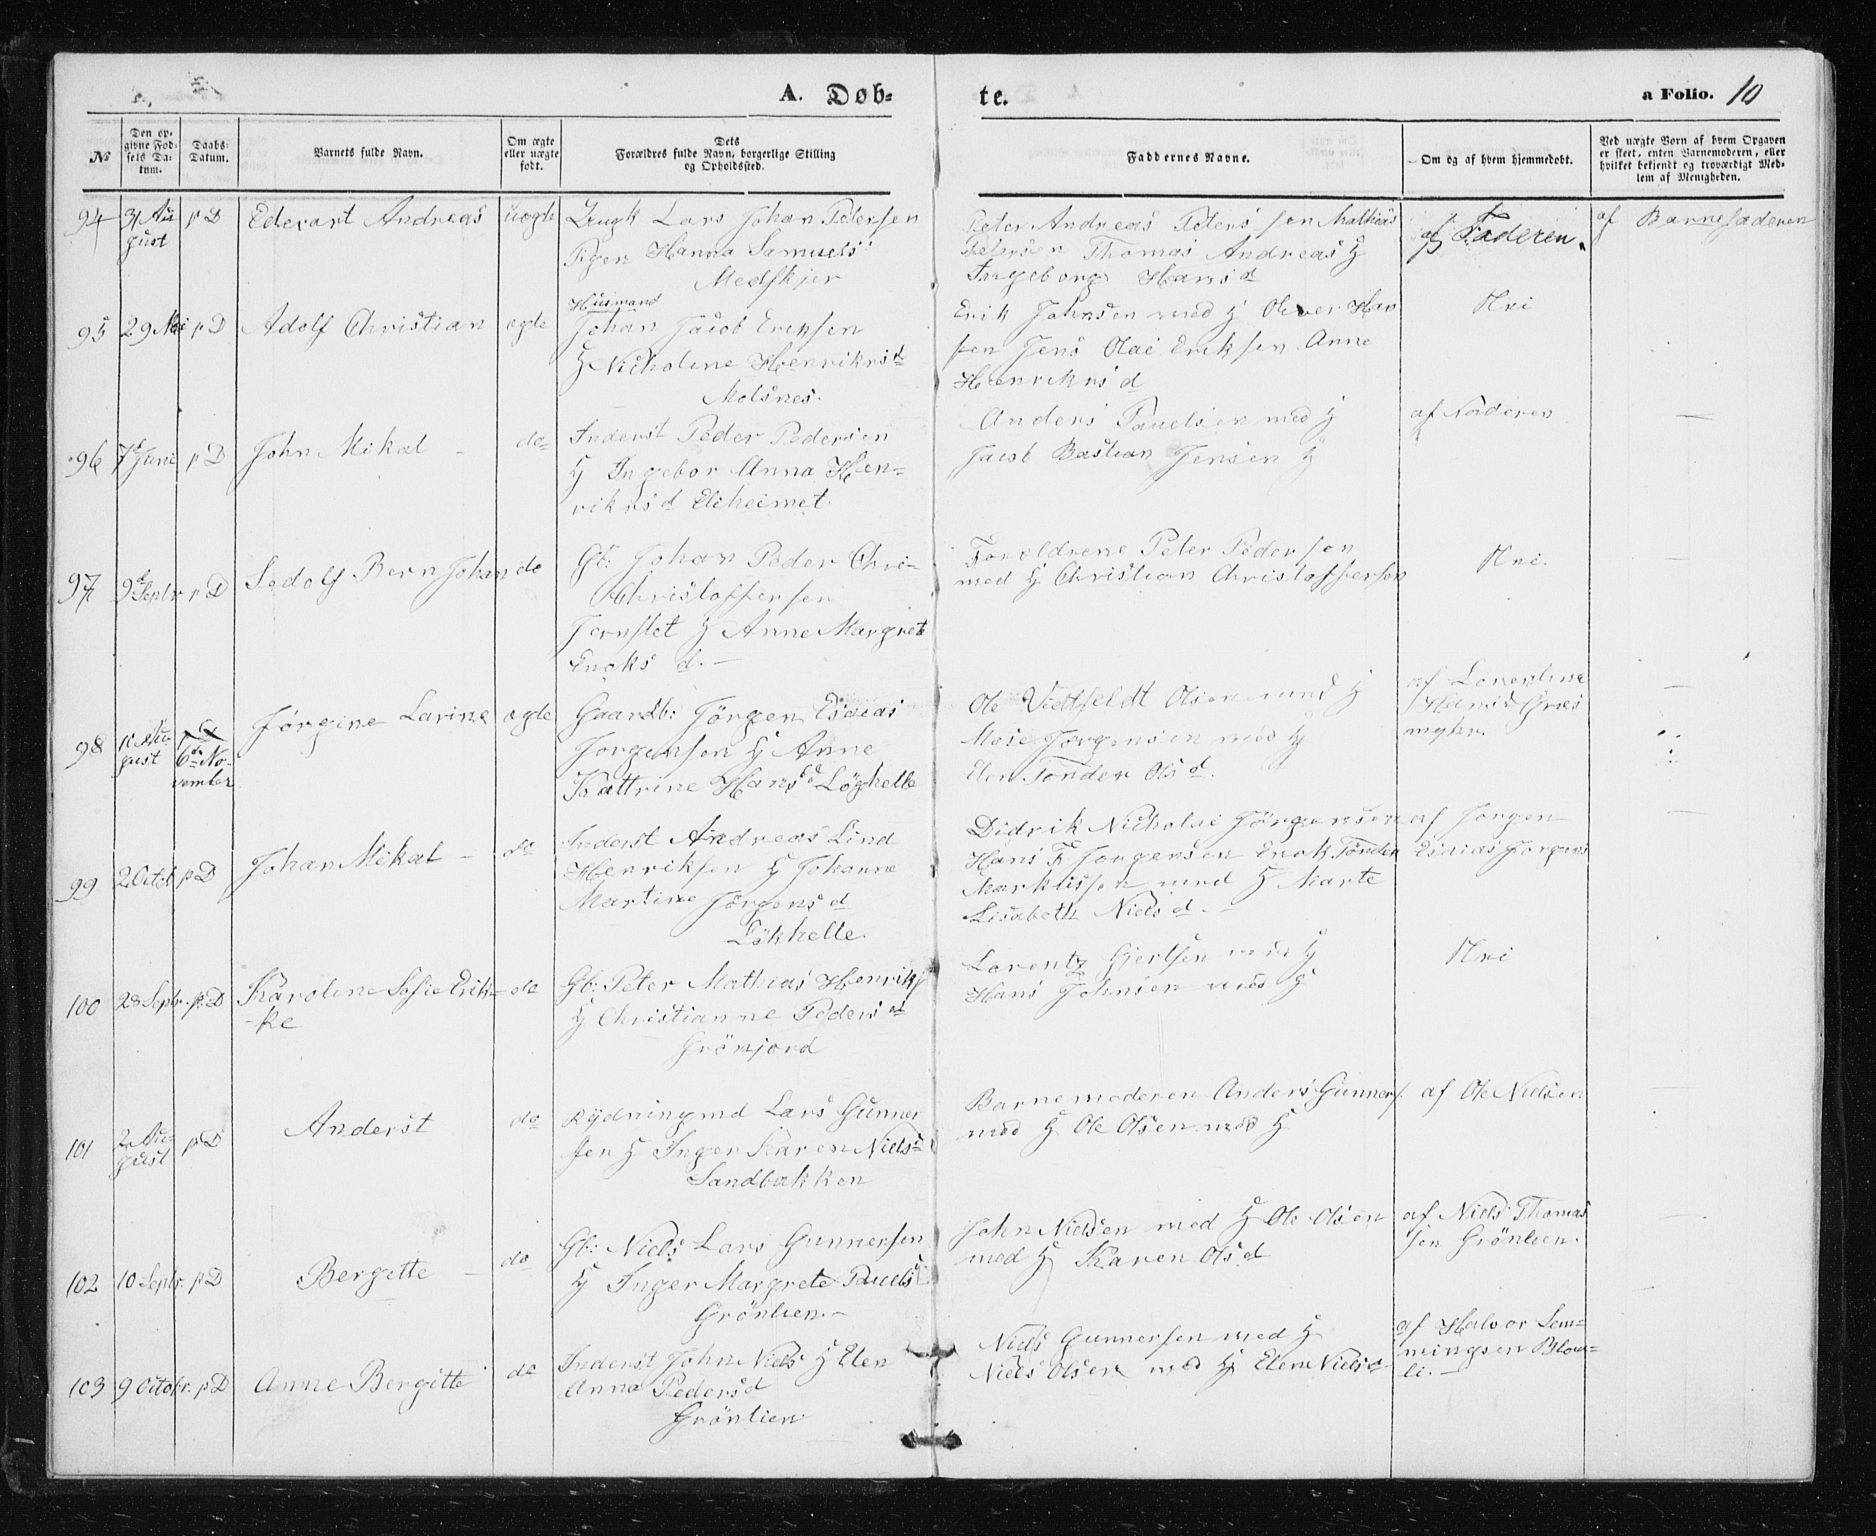 A. Døb-
te.
a Folio. 10
No
Den op-
givne Fød-
sels Da-
tum.
Daabs-
Datum.
Barnets fulde Navn.
Om ægte
eller uægte
født.
Dets
Forældres fulde Navn, borgerlige Stilling
og Opholdssted.
Faddernes Navne.
Om og af hvem hjemmedøbt.
Ved uægte Børn af hvem Opgaven
er skeet, enten Barnemoderen, eller
hvilket bekjendt og troværdigt Med-
lem af Menigheden.
94
31 Au-
gust
p D
Edevart Andreas
uægte
Ungk Lars Johan Petersen
Pigen Hanna Samuels
Medkjer
Peter Andreas Peters sen Mathias
Petersen Thomas Andreas H
Ingeborg Hans d
af Faderen.
af Barnefaderen
95
29 Mai
p D
Adolf Christian
ægte
Husmand
Johan Jacob Eriksen
H Nicholine Henriks d
Molsnes.
Erik Johnsen med H Oliver Han
sen Jens Olai Eriksen Anne
Henriks d
Nei
96
7d Juni
p D
John Mikal
do
Inderst Peder Pedersen
H Ingebor Anna Hen-
riks d Eliheimet.
Anders Pauelsen med H
Jacob Bastian Jensen H
af Faderen
97
9d Septbr
p D
Sedolf Bern Johan
do
Gb: Johan Peder Chri-
Christoffersen
Jernslet H Anne Margret
Enoks d.
Forældrene Peter Pedersen
med H Christian Christoffersen
Nei.
98
August
6te No-
vember
Jørgine Larine
ægte
Gaardb: Jørgen Esaias
Jørgensen H Anne
Kattrine Hans d Løghelle
Ole Vedfeldt Olsen med H
Mose Jørgensen med H
Elen Tonder Ols d.
af Lorentine
Hans d Græs
myhr.
99
2 Octob
p D
Johan Mikal
do
Inderst Andreas Lind
Henriksen H Johanne
Martine Jörgens d
Lökhelle.
Didrik Nicholai Jörgensen
Hans F Jorgensen Enok Tönder
Markussen med H Marte
Lisabeth Niels d.
af Jorgen
Esaias Jorgens
100
28 Septr.
p. D
Karoline Sofie Erik-
-ke
do
Gb: Peter Mathias Henriks
H Christianne Peders d
Grönjord
Lorentz Gjertsen med H
Hans Johnsen med H
Nei
101
2 Au-
gust
p D
Anderst
do
Rydningmd Lars Gunner
sen H Inger Karen Niels
Sandbakken
Barnemoderen Anders Gunners.
med H Ole Olsen med H
af Ole Nielsen
102
10 Septr.
p D
Bergitte
do
Gb: Niels Lars Gunnersen
H Inger Margrete Pauels
Grönlien.
John Nielsen med H Ole Olsen
med H Karen Ols d
af Niels Thomas
sen Grönlien.
103
9 Octobr.
p D
Anne Bergitte
do
Inderst John Niels H Elen
Anna Peders d
Grönlien
Niels Gunnersen med H
Niels Olsen med H Elen Niels d
af Halvor Lem-
mingsen Blou-
li.